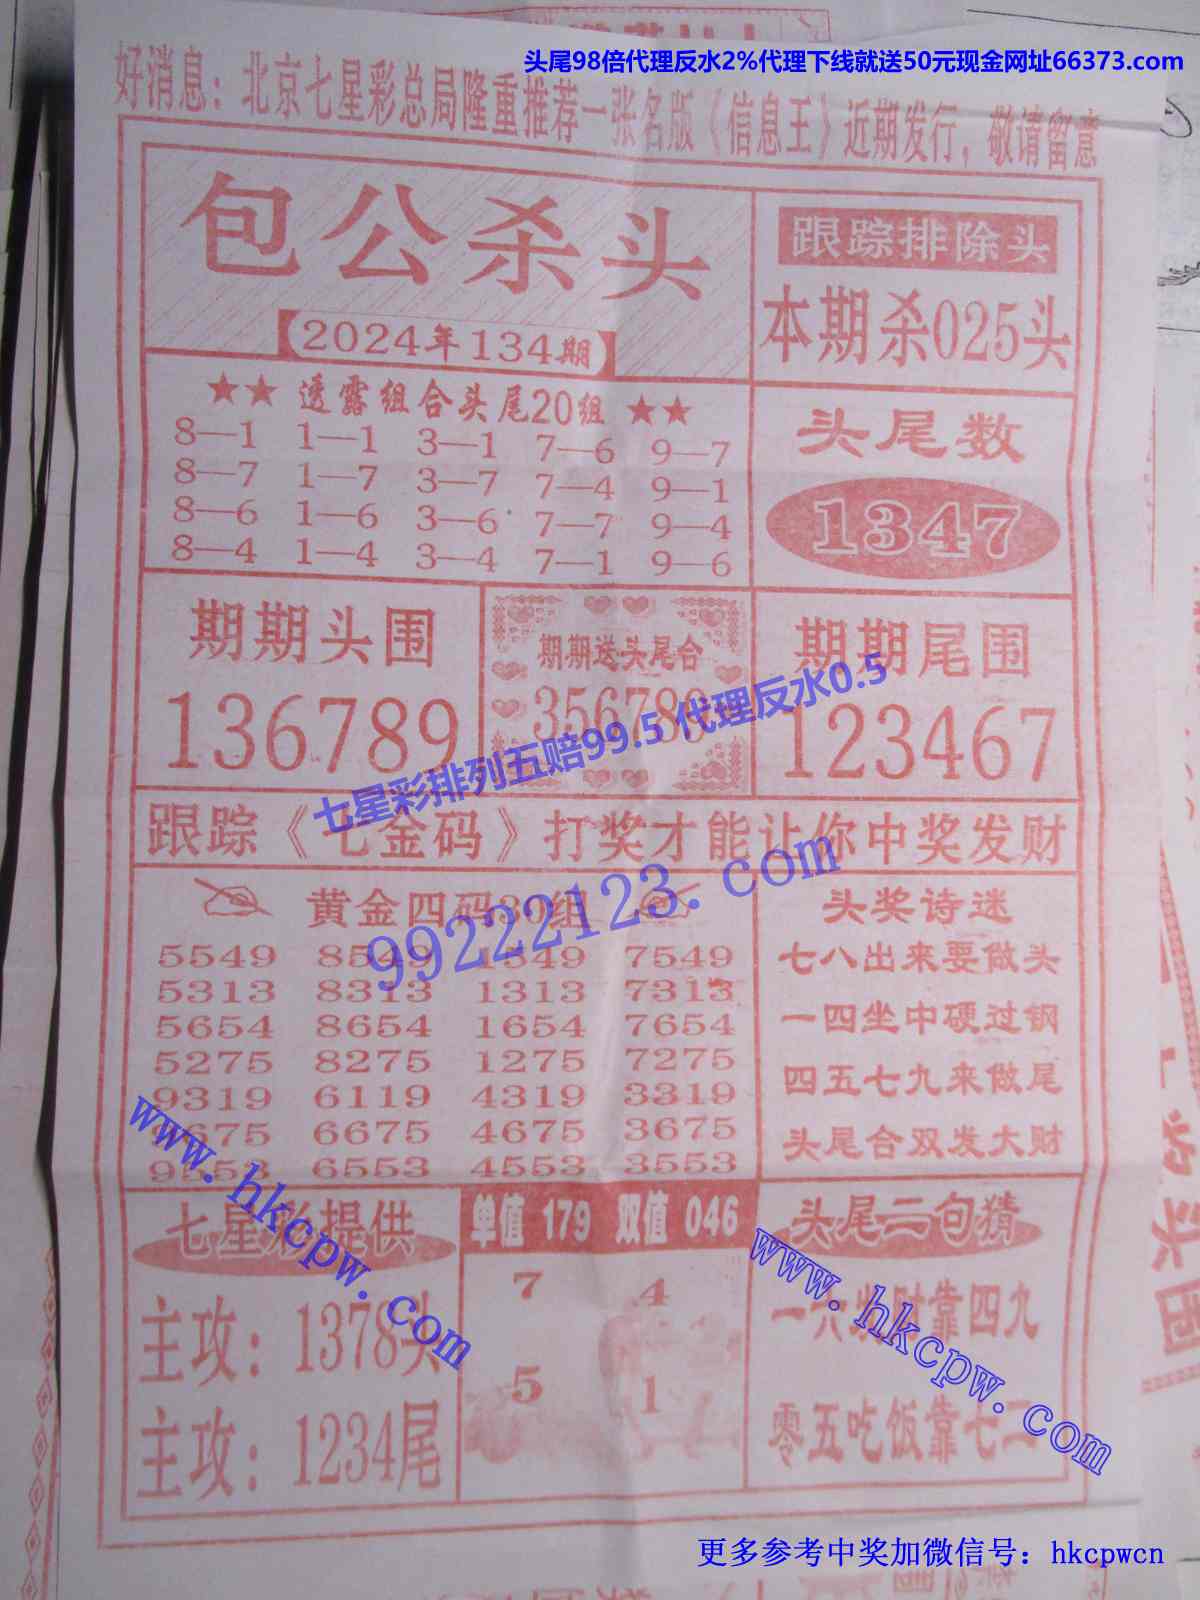 头尾98倍代理反水2%代理下线就送50元现金网址66373.com
好消息：北京七星彩总局隆重推荐一张名版《信息王》近期发行，敬请留意
包公杀头
【2024年134期】
跟踪排除头
本期杀025头
★★ 透露组合头尾20组 ★★
8—1 1—1 3—1 7—6 9—7
8—7 1—7 3—7 7—4 9—1
8—6 1—6 3—6 7—7 9—4
8—4 1—4 3—4 7—1 9—6
头尾数
1347
期期头围
136789
期期送头尾合
356789
期期尾围
123467
七星彩排列五赔99.5 代理反水0.5
跟踪《七金码》打奖才能让你中奖发财
99222123.com
黄金四码 组
5549 8549 1549 7549
5313 8313 1313 7313
5654 8654 1654 7654
5275 8275 1275 7275
9319 6119 4319 3319
675 6675 4675 3675
9553 6553 4553 3553
头奖诗迷
七八出来要做头
一四坐中硬过钢
四五七九来做尾
头尾合双发大财
www.hkcpw.com
七星彩提供
主攻：1378头
主攻：1234尾
单值 179 双值 046
7 4
5 1
头尾二句猜
一六 财靠四九
零五吃饭靠七二
www.hkcpw.com
更多参考中奖加微信号：hkcpwcn